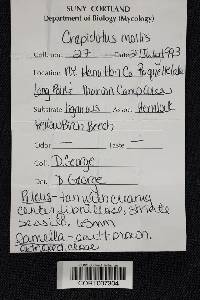 SUNY CORTLAND
Department of Biology (Mycology)
Crepidotus mollis
Coll. no. 27 Date 21 July 1993
Location NY. Hamilton Co. Raquette Lake
Long Point Huntington Complex
Substrate lignicous Assoc. Hemlock
Yellow Birch Beech
Odor - Taste -
Coll. D. George
Det. D. George
Pileus - tan with creamy
center, fibrillose, striate
sessile, 65mm
Lamella - light brown,
close
CORT007904